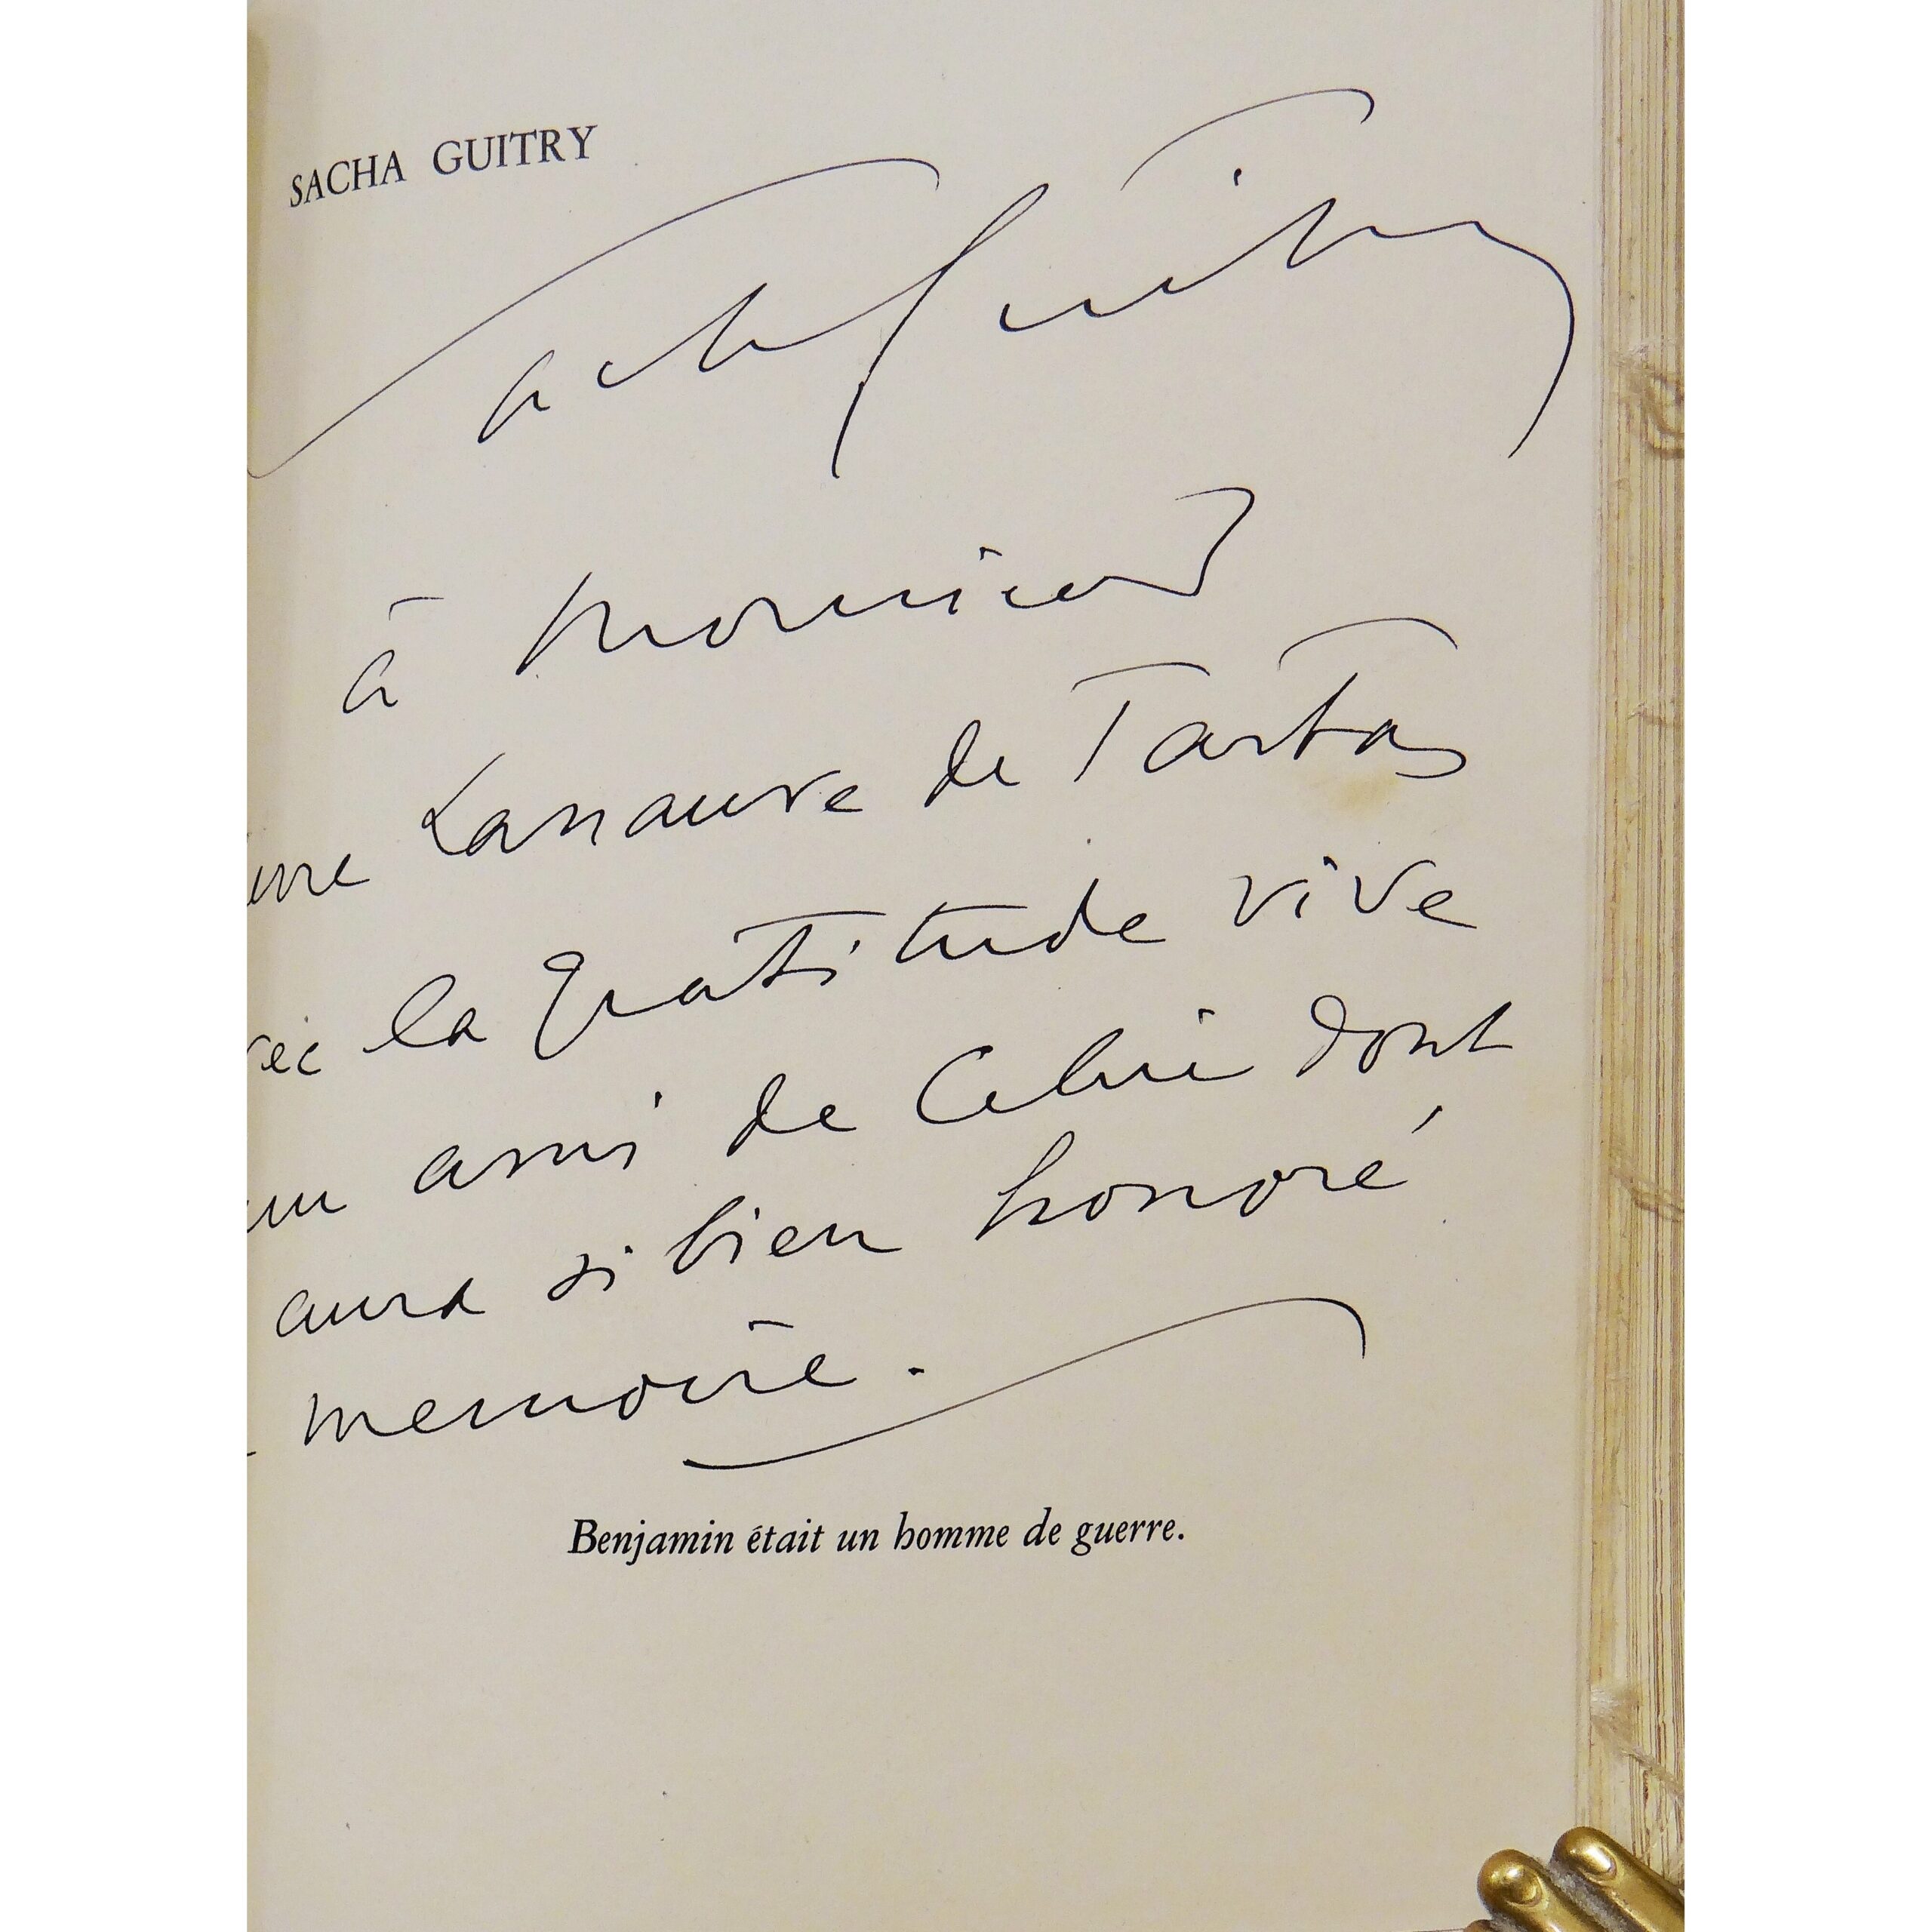 SACHA GUITRY
Sacha Guitry
à Monsieur
erre Lanauve de Tartas
vec la gratitude vive
un ami de Celui dont
aura si bien honoré
memoire.
Benjamin était un homme de guerre.